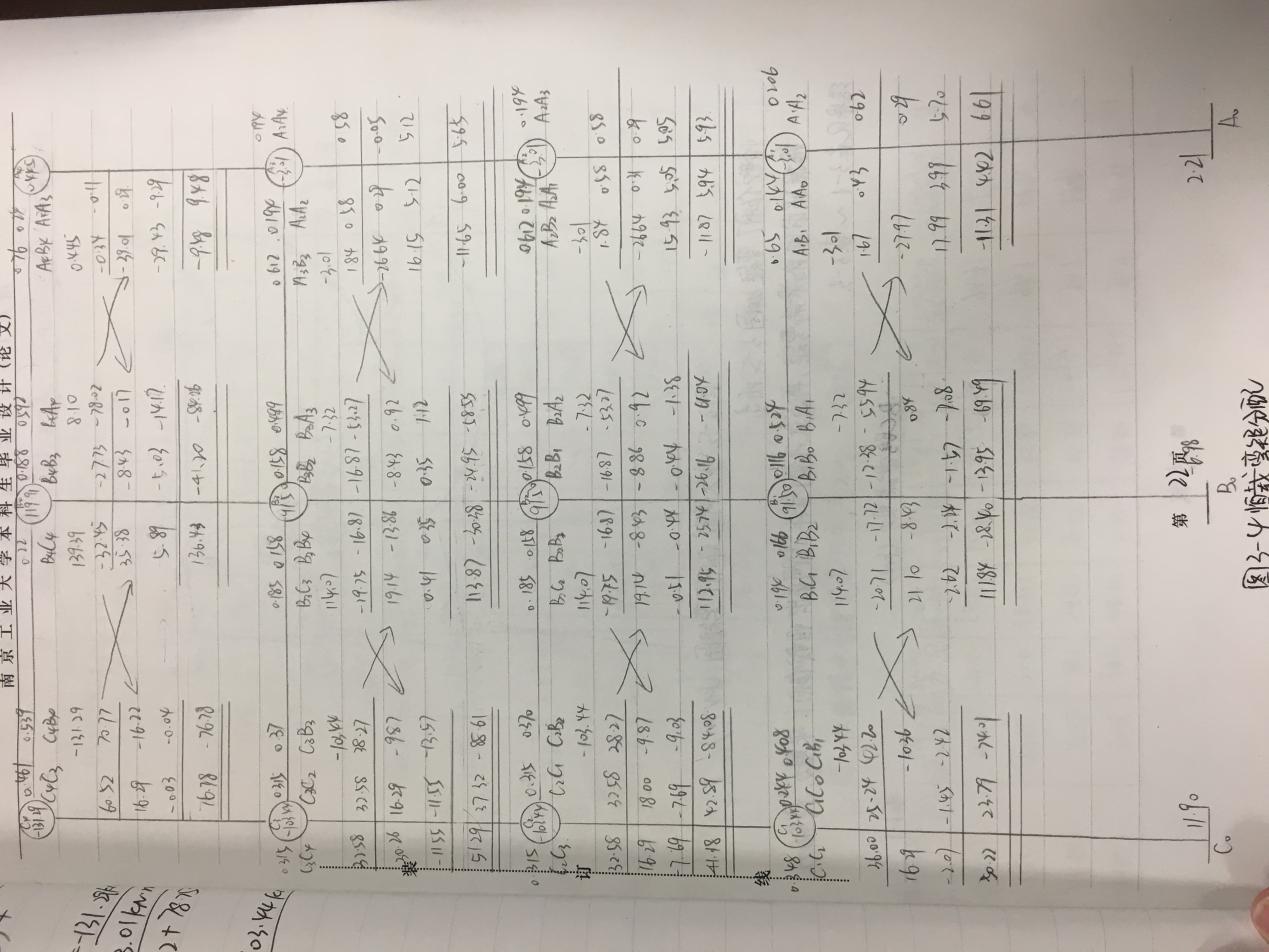 南京工业大学本科生毕业设计(论文)
0.461 0.539 0.22 0.188 0.592 0.76
C₄ -131.29 B₄ 119.91 A₄ 0.445
C₄C₃ C₄B₄ B₄C₄ B₄B₃ B₄A₄ A₄B₄ A₄A₃
-131.29 139.39 8.10 0.445
60.52 70.77 -32.45 -27.73 -78.02 -0.34 -0.11
16.29 -16.22 35.38 -8.43 -0.17 -39.01 0.29
-0.03 -0.04 5.89 -5.03 -14.17 -29.43 -9.29
76.78 -76.78 136.43 -41.20 -84.26 -9.48 9.48
0.315 0.315 0.37 0.185 0.158 0.158 0.499 0.612 0.194 0.194
C₃ -103.44 B₃ 91.50 A₃ -3.01
C₃C₄ C₃C₂ C₃B₃ B₃C₃ B₃B₄ B₃B₂ B₃A₃ A₃B₃ A₃A₂ A₃A₄
-103.44 114.07 -7.32 -3.01
32.58 32.58 38.27 -19.75 -16.87 -16.87 -53.27 1.84 0.58 0.58
30.26 16.29 -9.87 19.14 -13.86 -8.43 0.92 -26.64 0.29 -0.05
-11.55 -11.55 -13.57 0.41 0.35 0.35 1.12 16.15 5.12 5.12
51.29 37.32 -88.61 113.87 -30.38 -24.95 -58.55 -11.65 6.00 5.65
0.315 0.315 0.370 0.185 0.158 0.158 0.499 0.612 0.194 0.194
C₂ -103.44 B₂ 91.50 A₂ -3.01
C₂C₃ C₂C₁ C₂B₂ B₂C₂ B₂B₃ B₂B₁ B₂A₂ A₂B₂ A₂A₁ A₂A₃
-103.44 114.07 -7.32 -3.01
32.58 32.58 38.27 -19.75 -16.87 -16.87 -53.27 1.84 0.58 0.58
16.29 18.00 -9.87 19.14 -8.43 -8.86 0.92 -26.64 0.31 0.29
-7.69 -7.69 -9.03 -0.51 -0.44 -0.44 -1.38 15.93 5.05 5.05
41.18 42.89 -84.08 112.95 -25.74 -26.16 -61.04 -11.87 5.94 5.93
0.348 0.244 0.408 0.194 0.166 0.116 0.524 0.65 0.144 0.206
C₁ -103.44 B₁ 91.50 A₁ -3.01
C₁C₂ C₁C₀ C₁B₁ B₁C₁ B₁B₂ B₁B₀ B₁A₁ A₁B₁ A₁A₀ A₁A₂
-103.44 114.07 -7.32 -3.01
36.00 25.24 42.20 -20.71 -17.72 -12.38 -55.94 1.67 0.43 0.62
16.29 -10.36 21.10 -8.43 0.84 -27.97 0.29
-2.07 -1.45 -2.42 -2.62 -2.24 -1.57 -7.08 17.99 3.99 5.70
50.22 23.79 -74.01 111.84 -28.40 -13.95 -69.49 -11.31 4.42 6.61
11.90 -6.98 2.21
C₀ B₀ A₀
第 22 页
装
订
线
=-131.29
3.01kN
2+78
03.44